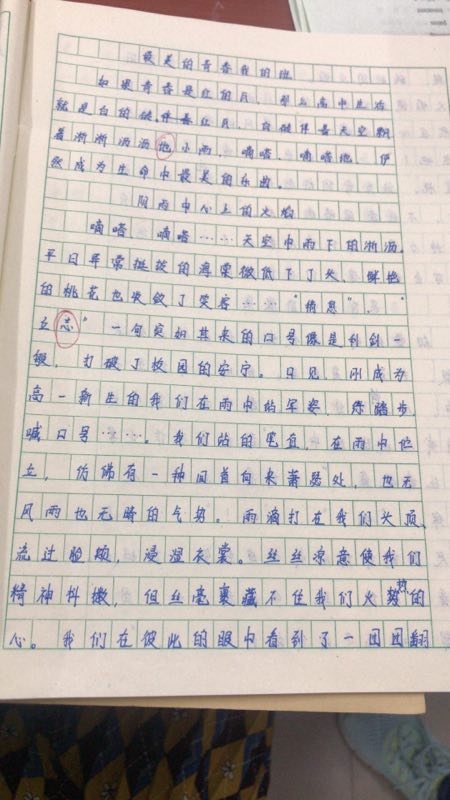 最美的青春我的班
如果青春是红的月，那么高中生活
就是白的键。伴着红月，白键伴着天空飘
着淅淅沥沥地小雨，嘀嗒，嘀嗒地，俨
然成为生命中最美的乐曲。
阴雨中心上的火焰
嘀嗒，嘀嗒……天空中雨下的淅沥，
平日异常挺拔的海棠微低下了头，鲜艳
的桃花也失敛了笑容……"稍息"、"
立志"一句突如其来的口号像是利剑一
般，打破了校园的安宁。只见，刚成为
高一新生的我们在雨中的军姿，踏步
喊口号……。我们站的笔直，在雨中伫
立，仿佛有一种回首向来萧瑟处，也无
风雨也无晴的气势。雨滴打在我们头顶，
流过脸颊，浸湿衣裳。丝丝凉意使我们
精神抖擞，但丝毫裹藏不住我们火热的
心。我们在彼此的眼中看到了一团团翻